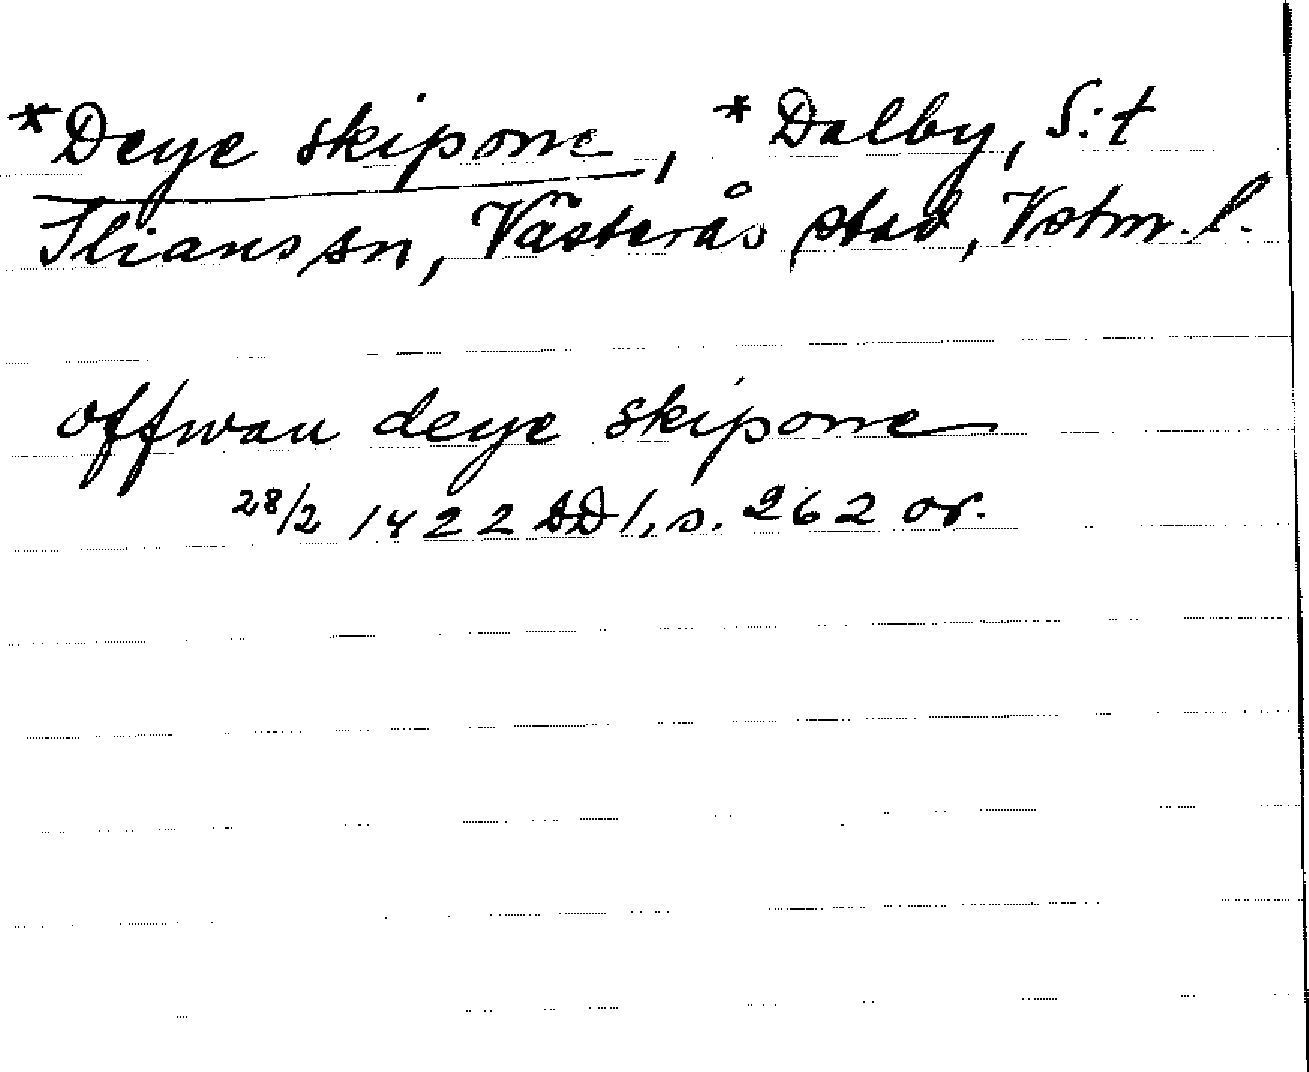 *Deye skipone, *Dalby, S:t
Ilians sn, Västerås stad, Vstm. l.
offwan deye skipone
28/2 1422 SD 1, s. 262 or.